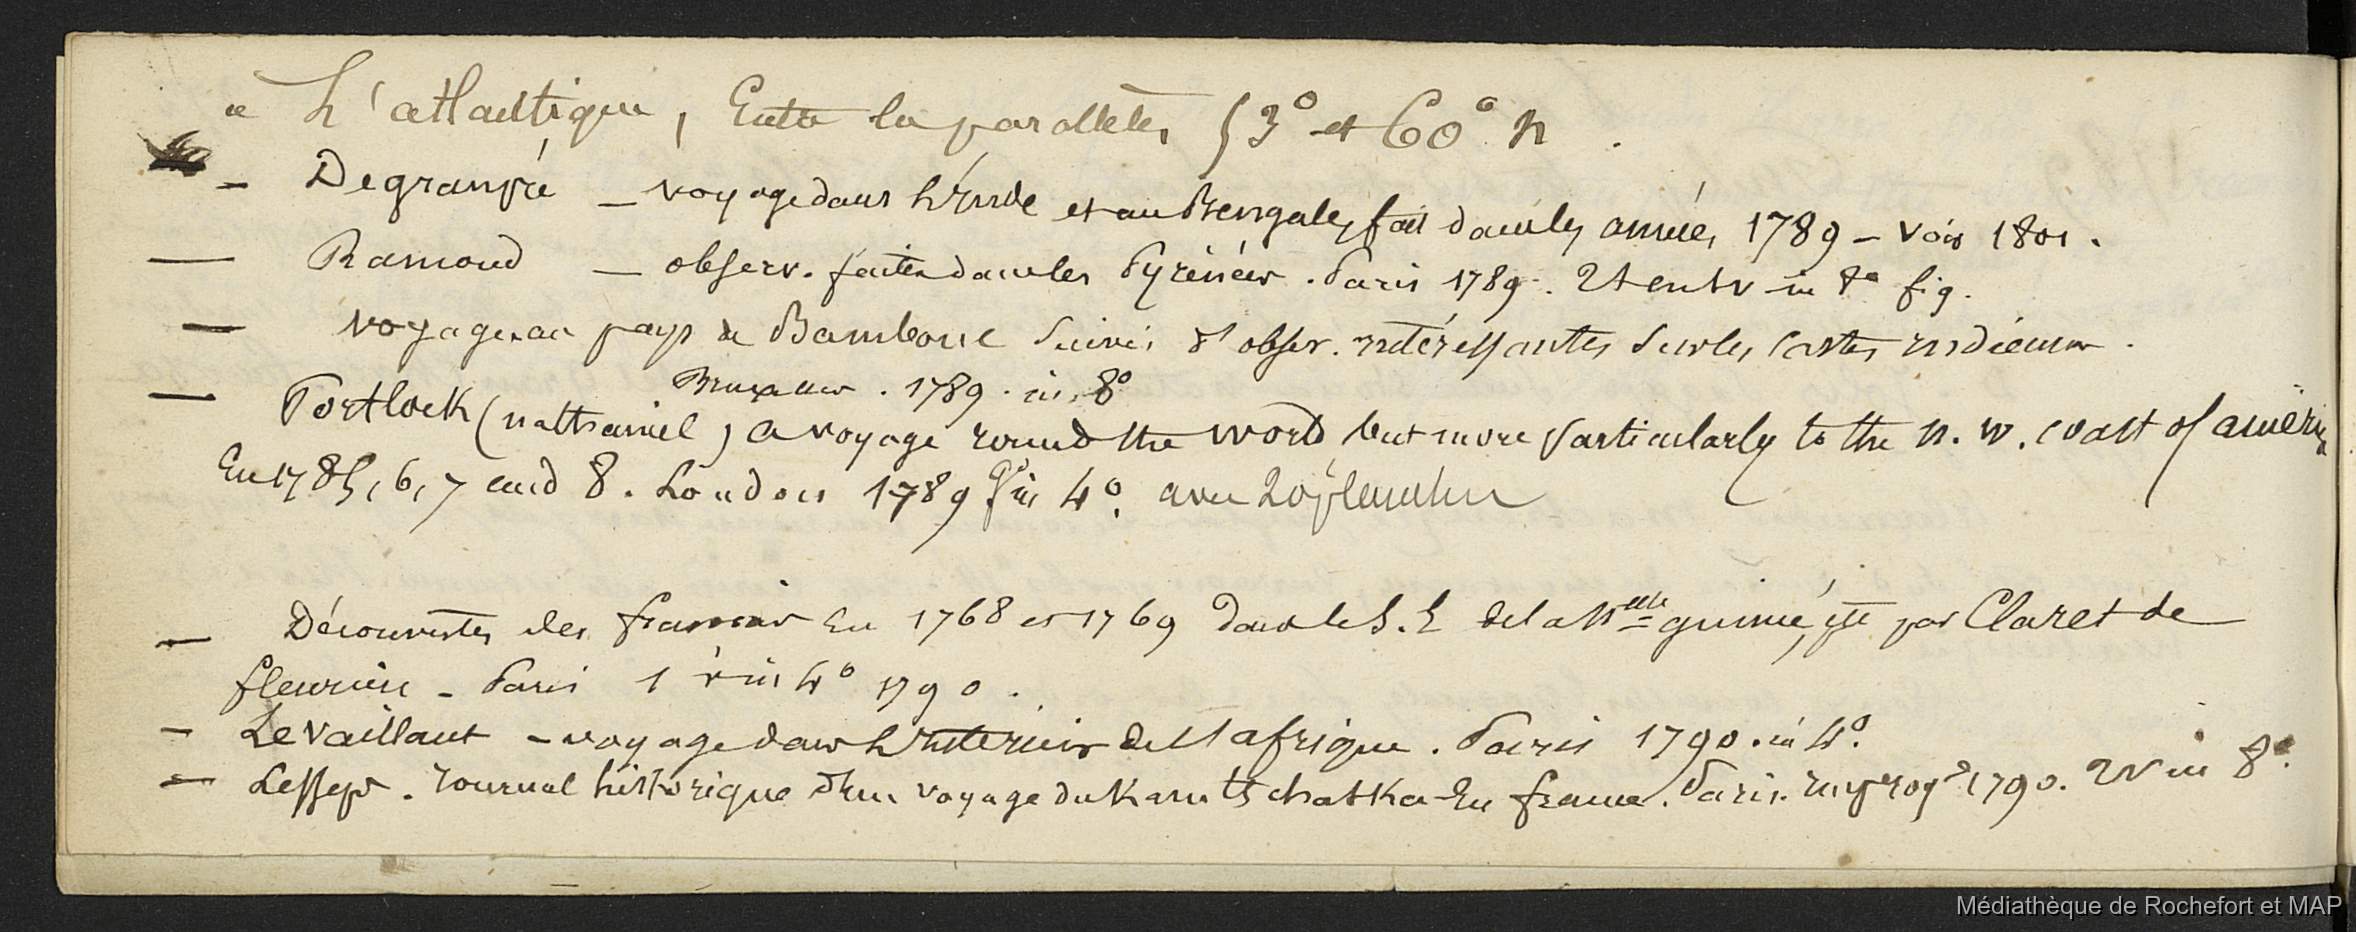 L'atlantique, Entre les paralleles 53° et 60° n.
- Degranpré - voyage dans l'inde et au Bengale, fait dans les années 1789 - Voir 1801.
- Ramond - observ. faites dans les Pyrénées. Paris 1789. 2t en 1v in 8° fig.
- voyage au pays de Bambouc suivi d'obser. intéressantes sur les castes indiennes.
Bruxelles. 1789. in 8°
- Portlock (nathaniel) a voyage round the world but more particularly to the n. w. coast of america
En 1785, 6, 7 and 8. London 1789 in 4°. avec 20 planches
- Découvertes des francais En 1768 et 1769 dans le S. E de la Nelle guinée, par Claret de
fleurieu - Paris 1 v in 4° 1790.
- Le Vaillant - voyage dans l'interieur de l'afrique. Paris 1790. in 4°.
- Lesseps. Journal historique d'un voyage du Kamtschatka En france. Paris. imp roy 1790. 2v in 8°.
Médiathèque de Rochefort et MAP